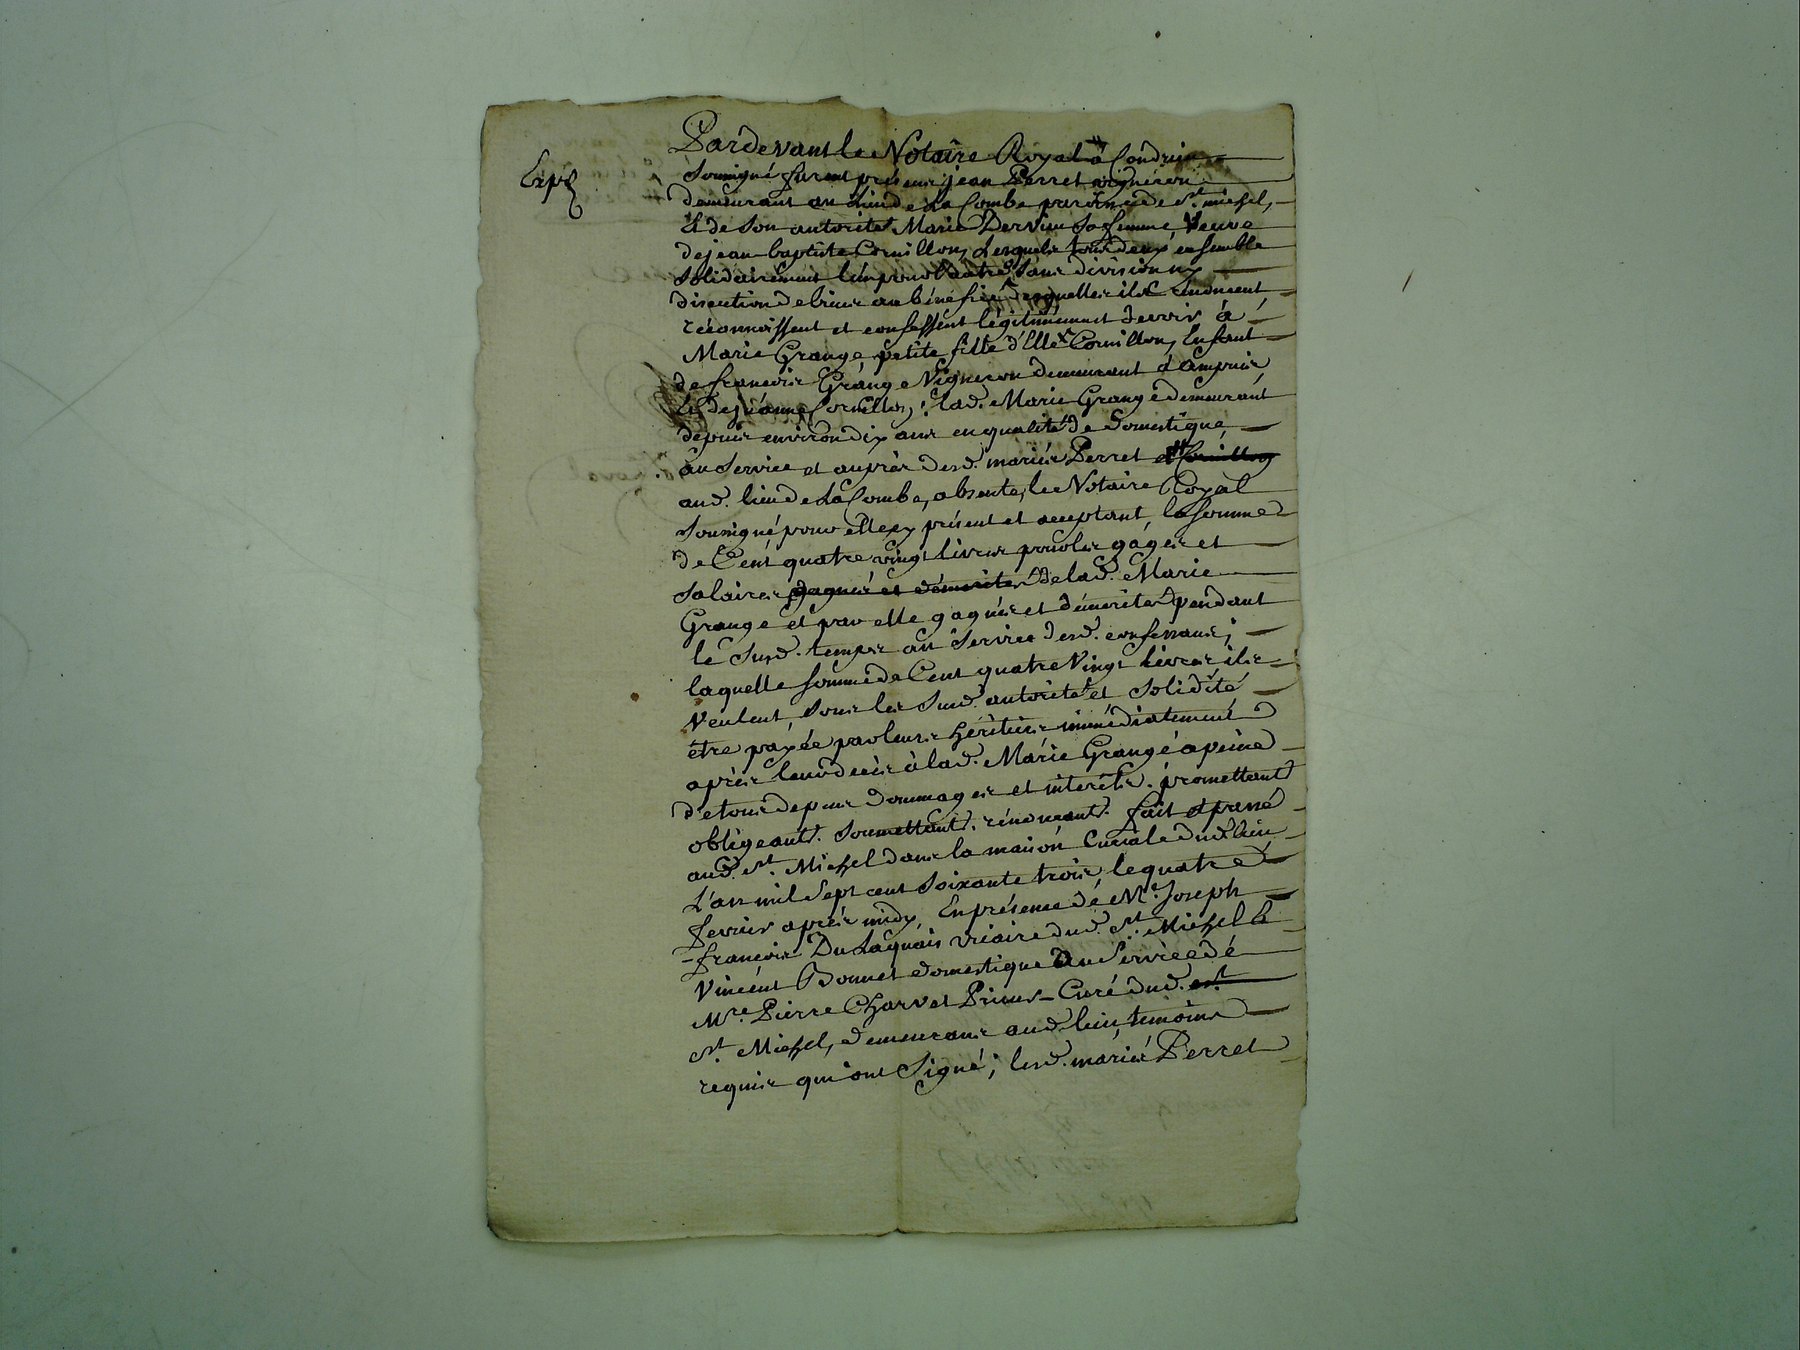 Expé
Pardevant le Notaire Royal à Condrieu
Soussigné furent présens jean Perret vigneron
demeurant au lieu de La Combe paroisse de St. michel,
Et de son autorité Marie Dervieu sa femme, Veuve
de jean baptiste Cornillon, Lesquels tous deux ensemble
solidairement l'un pour l'autre sans division ny
discution de biens au bénéfice desquelles ils renoncent,
réconnoissent et confessent légitimement devoir à
Marie Grange petite fille d'Elle Cornillon, Enfant
de francois Grange Vigneron demeurant d'Ampuis,
Et de jeanne Cornillon; lad. Marie Grange demeurant
depuis environ dix ans en qualité de Domestique,
au service et auprès desd. mariés Perret et Cornillon
aud. lieu de La Combe, absente, le Notaire Royal
soussigné pour elle y présent et acceptant, la somme
de Cent quatre vingt Livres pour les gages et
salaires gagnés et démérités de lad. Marie
Grange et par elle gagnés et démérités pendant
le susd. temps au service desd. confessans;
laquelle somme de Cent quatre Vingt Livres, ils
veulent, sous les susd. autorité et solidité
être payée par leurs héritiers immédiatement
après leur décès à lad. Marie Grange a peine
de tous depens dommages et intérêts. promettant
obligeant. soumettant. rénonceant. fait et passé
aud. St. Michel dans la maison Curiale dud. lieu
L'an mil sept cent soixante trois, le quatre
fevrier après midy, En présence de Mr. Joseph
françois DuLaquais vicaire dud. St. Michel &
Vincent Bonnet domestique au service de
Mre. Pierre Charvet Prieur-Curé dud. St.
St. Michel, demeurans aud. lieu, témoins
requis qui ont signé; lesd. mariés Perret